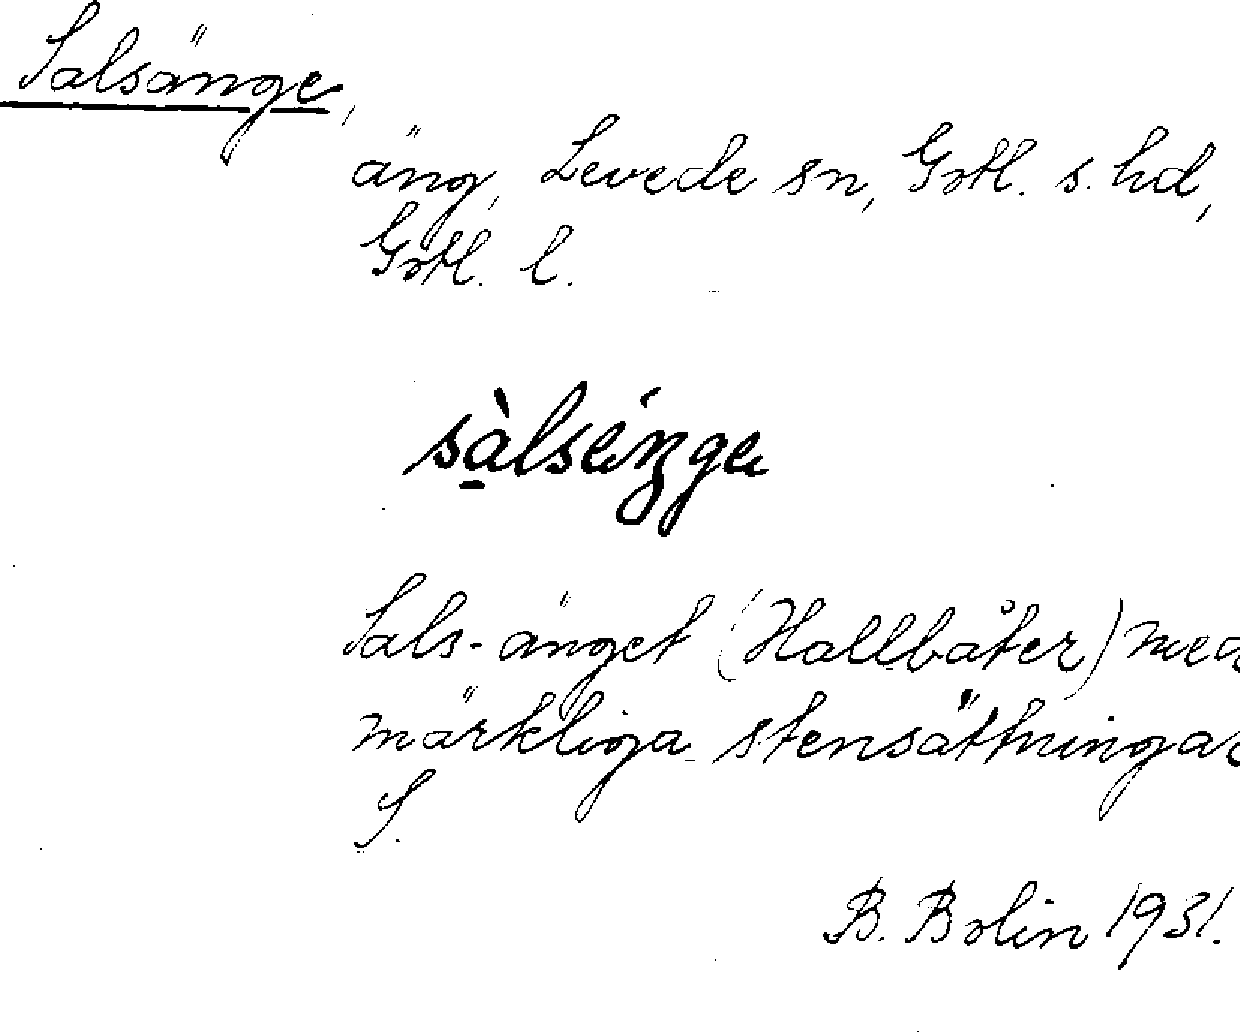 Salsänge,
äng, Levede sn, Gotl. s. hd,
Gotl. l.
Sals-änget (Hallbåter) med
märkliga stensättningar
S.
B. Bolin 1931.